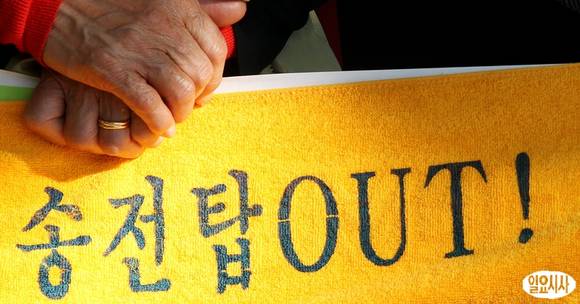 송전탑OUT!
일요시사